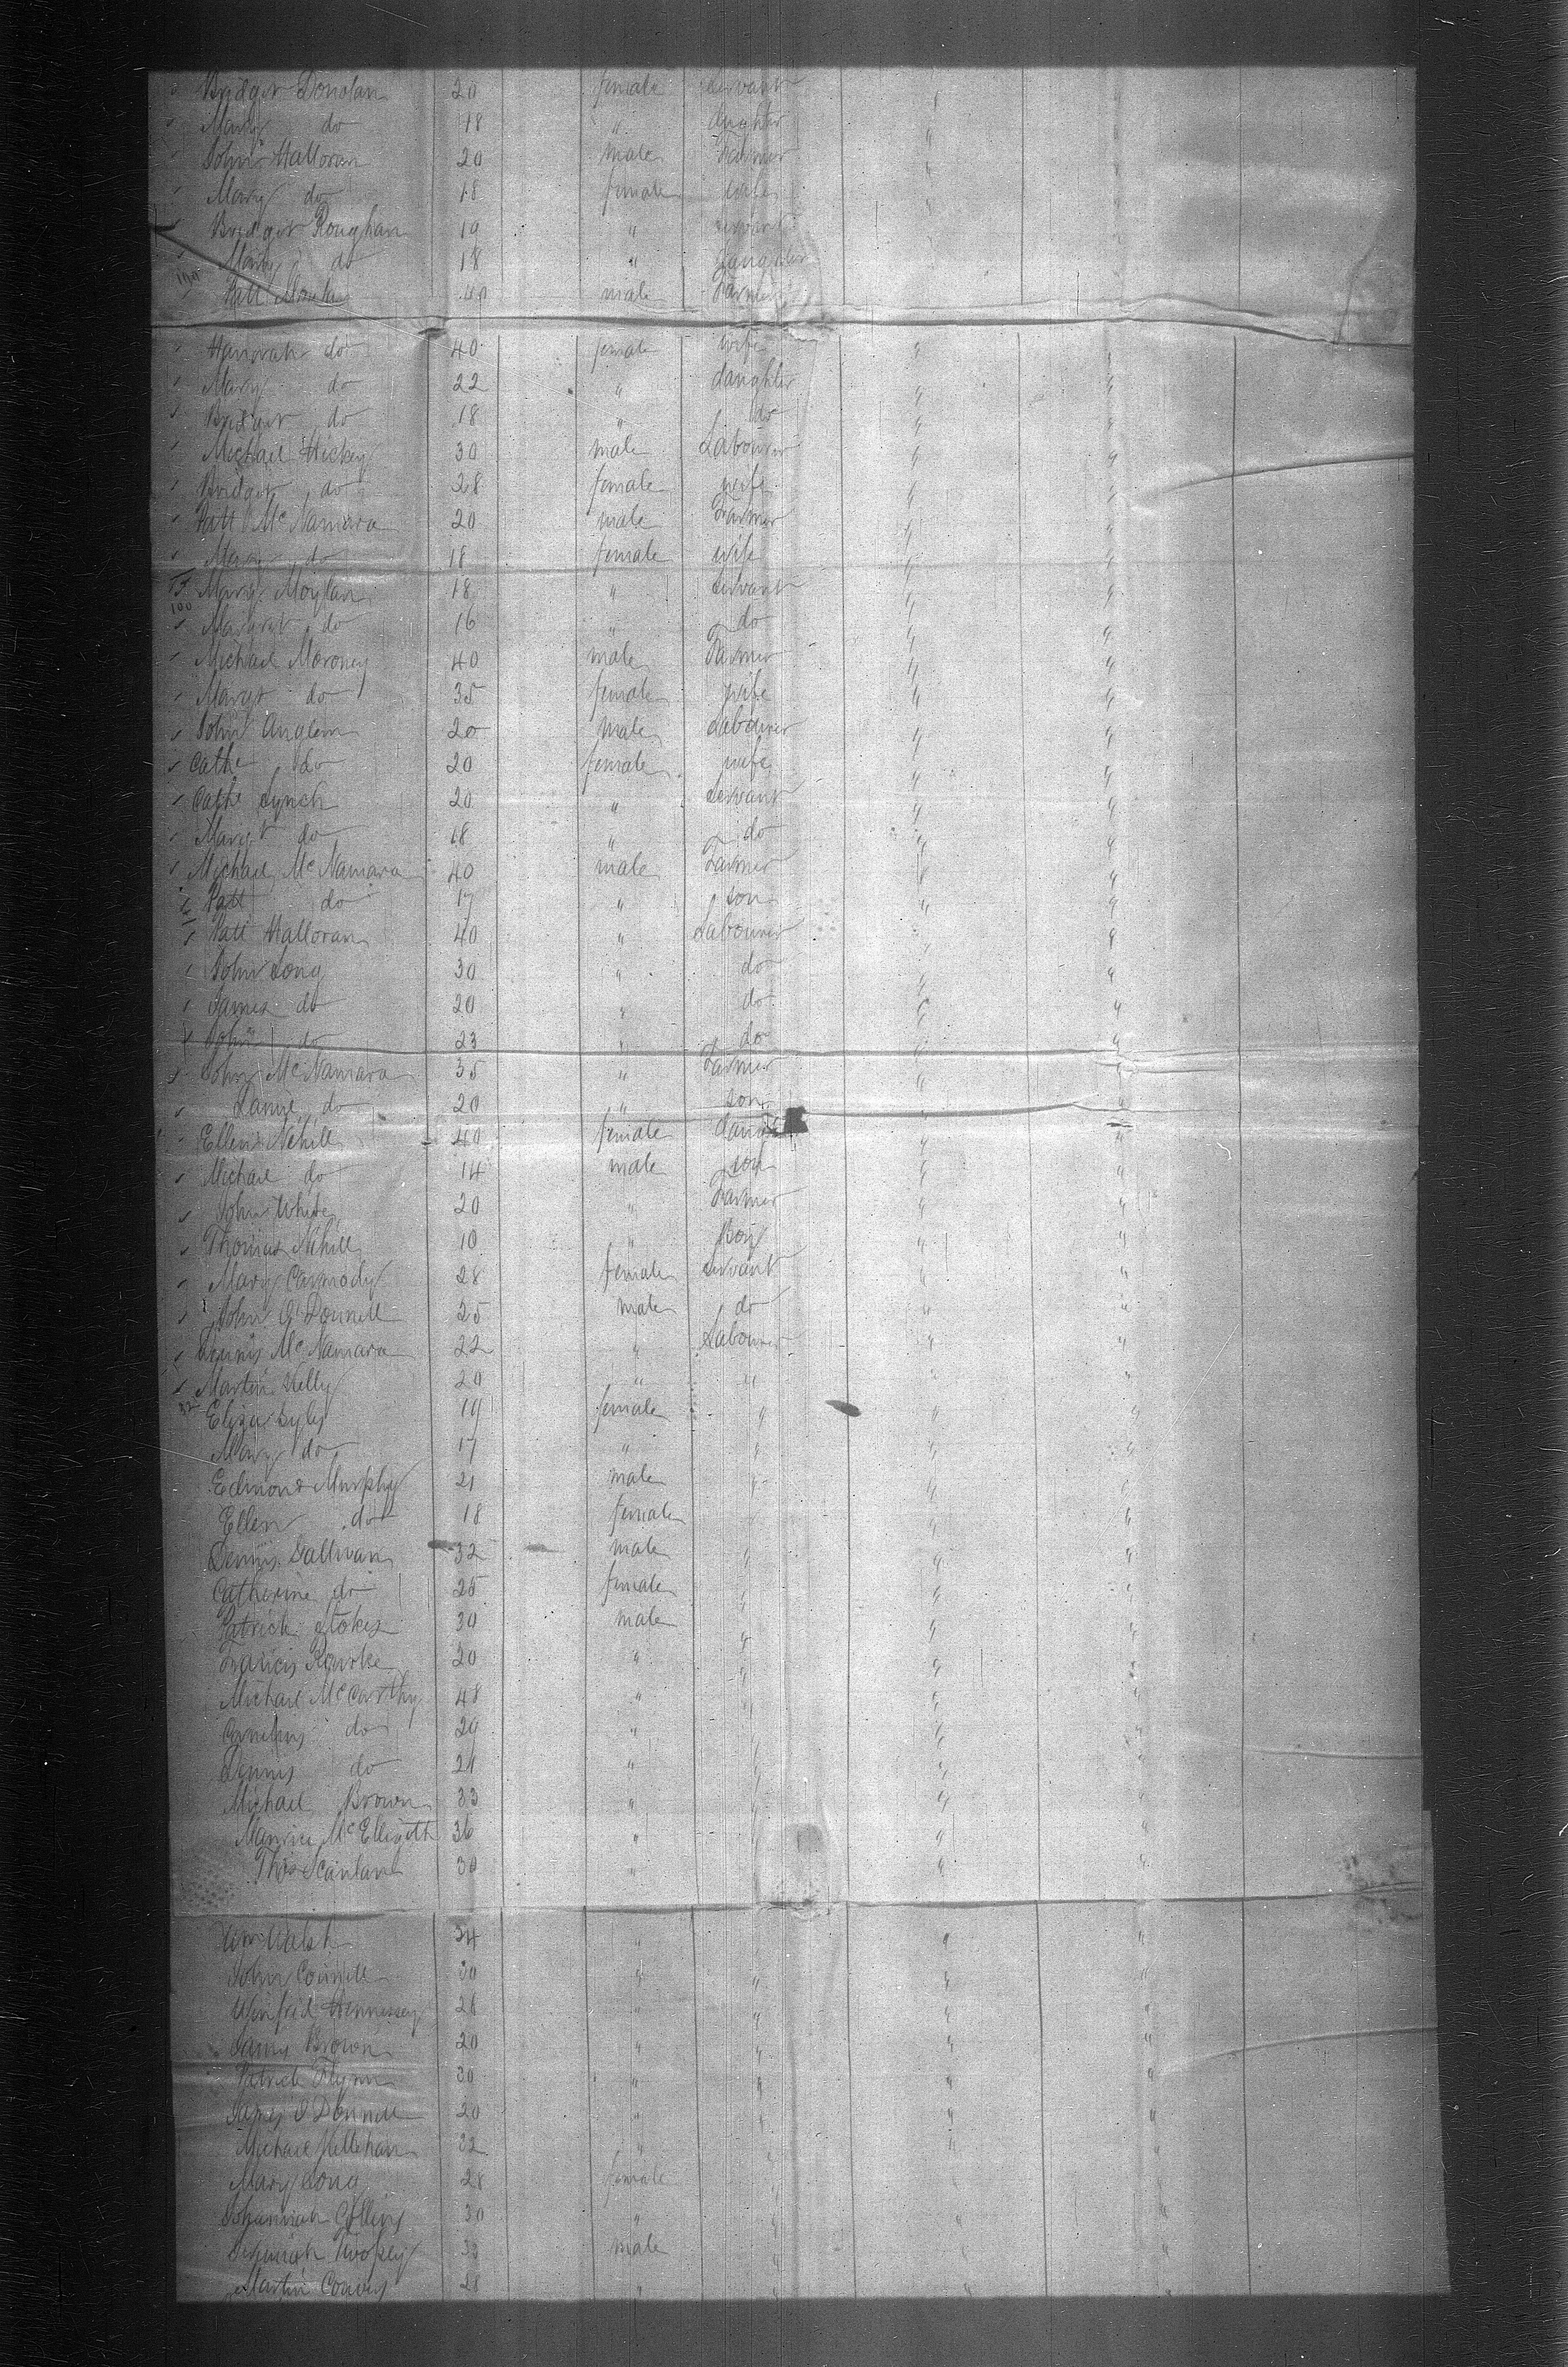 Bridget Donolan 20 female servant
Mary do 18 " daughter
John Halloran 20 male Farmer "
Mary do 18 female wife "
Bridget Roughan 19 " servant
Mary do 18 " daughter
Patt 40 male Farmer
Hanorah do 40 female wife " "
Mary do 22 " daughter " "
Bridget do 18 " do " "
Michael Hickey 30 male Labourer " "
Bridget do 28 female wife " "
Patt McNamara 20 male Farmer " "
Mary do 18 female wife " "
Mary Moylan 18 " servant " "
100
Margret do 16 " do " "
Michael Moroney 40 male Farmer " "
Margt do 35 female wife " "
John Anglem 20 male Labourer " "
Cathe do 20 female wife " "
Cathe Lynch 20 " Servant " "
Margt do 18 " do " "
Michael McNamara 40 male Farmer " "
Patt do 17 " son " "
Patt Halloran 40 " Labourer " "
John Long 30 " do " "
James do 20 " do " "
John do 23 " do " "
John McNamara 35 " Farmer " "
do 20 " son "
Ellen Nihill 40 female " "
Michael do 14 male son " "
John White 20 " Farmer " "
Thomas Nihill 10 " Boy " "
Mary Carmody 28 female Servant " "
John O'Donnell 25 male do " "
Dennis McNamara 22 " Labourer " "
Martin Kelly 20 " " "
Eliza Lyly 19 female " " "
Mary do 17 " " " "
Edmond Murphy 21 male " " "
Ellen do 18 female " "
Dennis Sullivan 32 male " " "
Catherine do 25 female " " "
Patrick Stokes 30 male " " "
Francis Rourke 20 " " " "
Michael McCarthy 48 " " " "
Cornelius do 20 " " "
Dennis do 24 " " " "
Michael Brown 33 " " " "
Maurice McElligott 36 " " " "
Thos Scanlan 30 " " " "
Wm Walsh 34 " " "
John Connell 30 " " " "
Winfrid Hennessey 28 " " " "
James Brown 20 " " " "
Patrick Flynn 30 " " " "
James O'Donnell 20 " " " "
Michael Kellehan 32 " " " "
Mary Long 28 female
Johannah Collins 30 " " " "
Jeremiah 33 male " " "
Martin Convey 28 " " " "